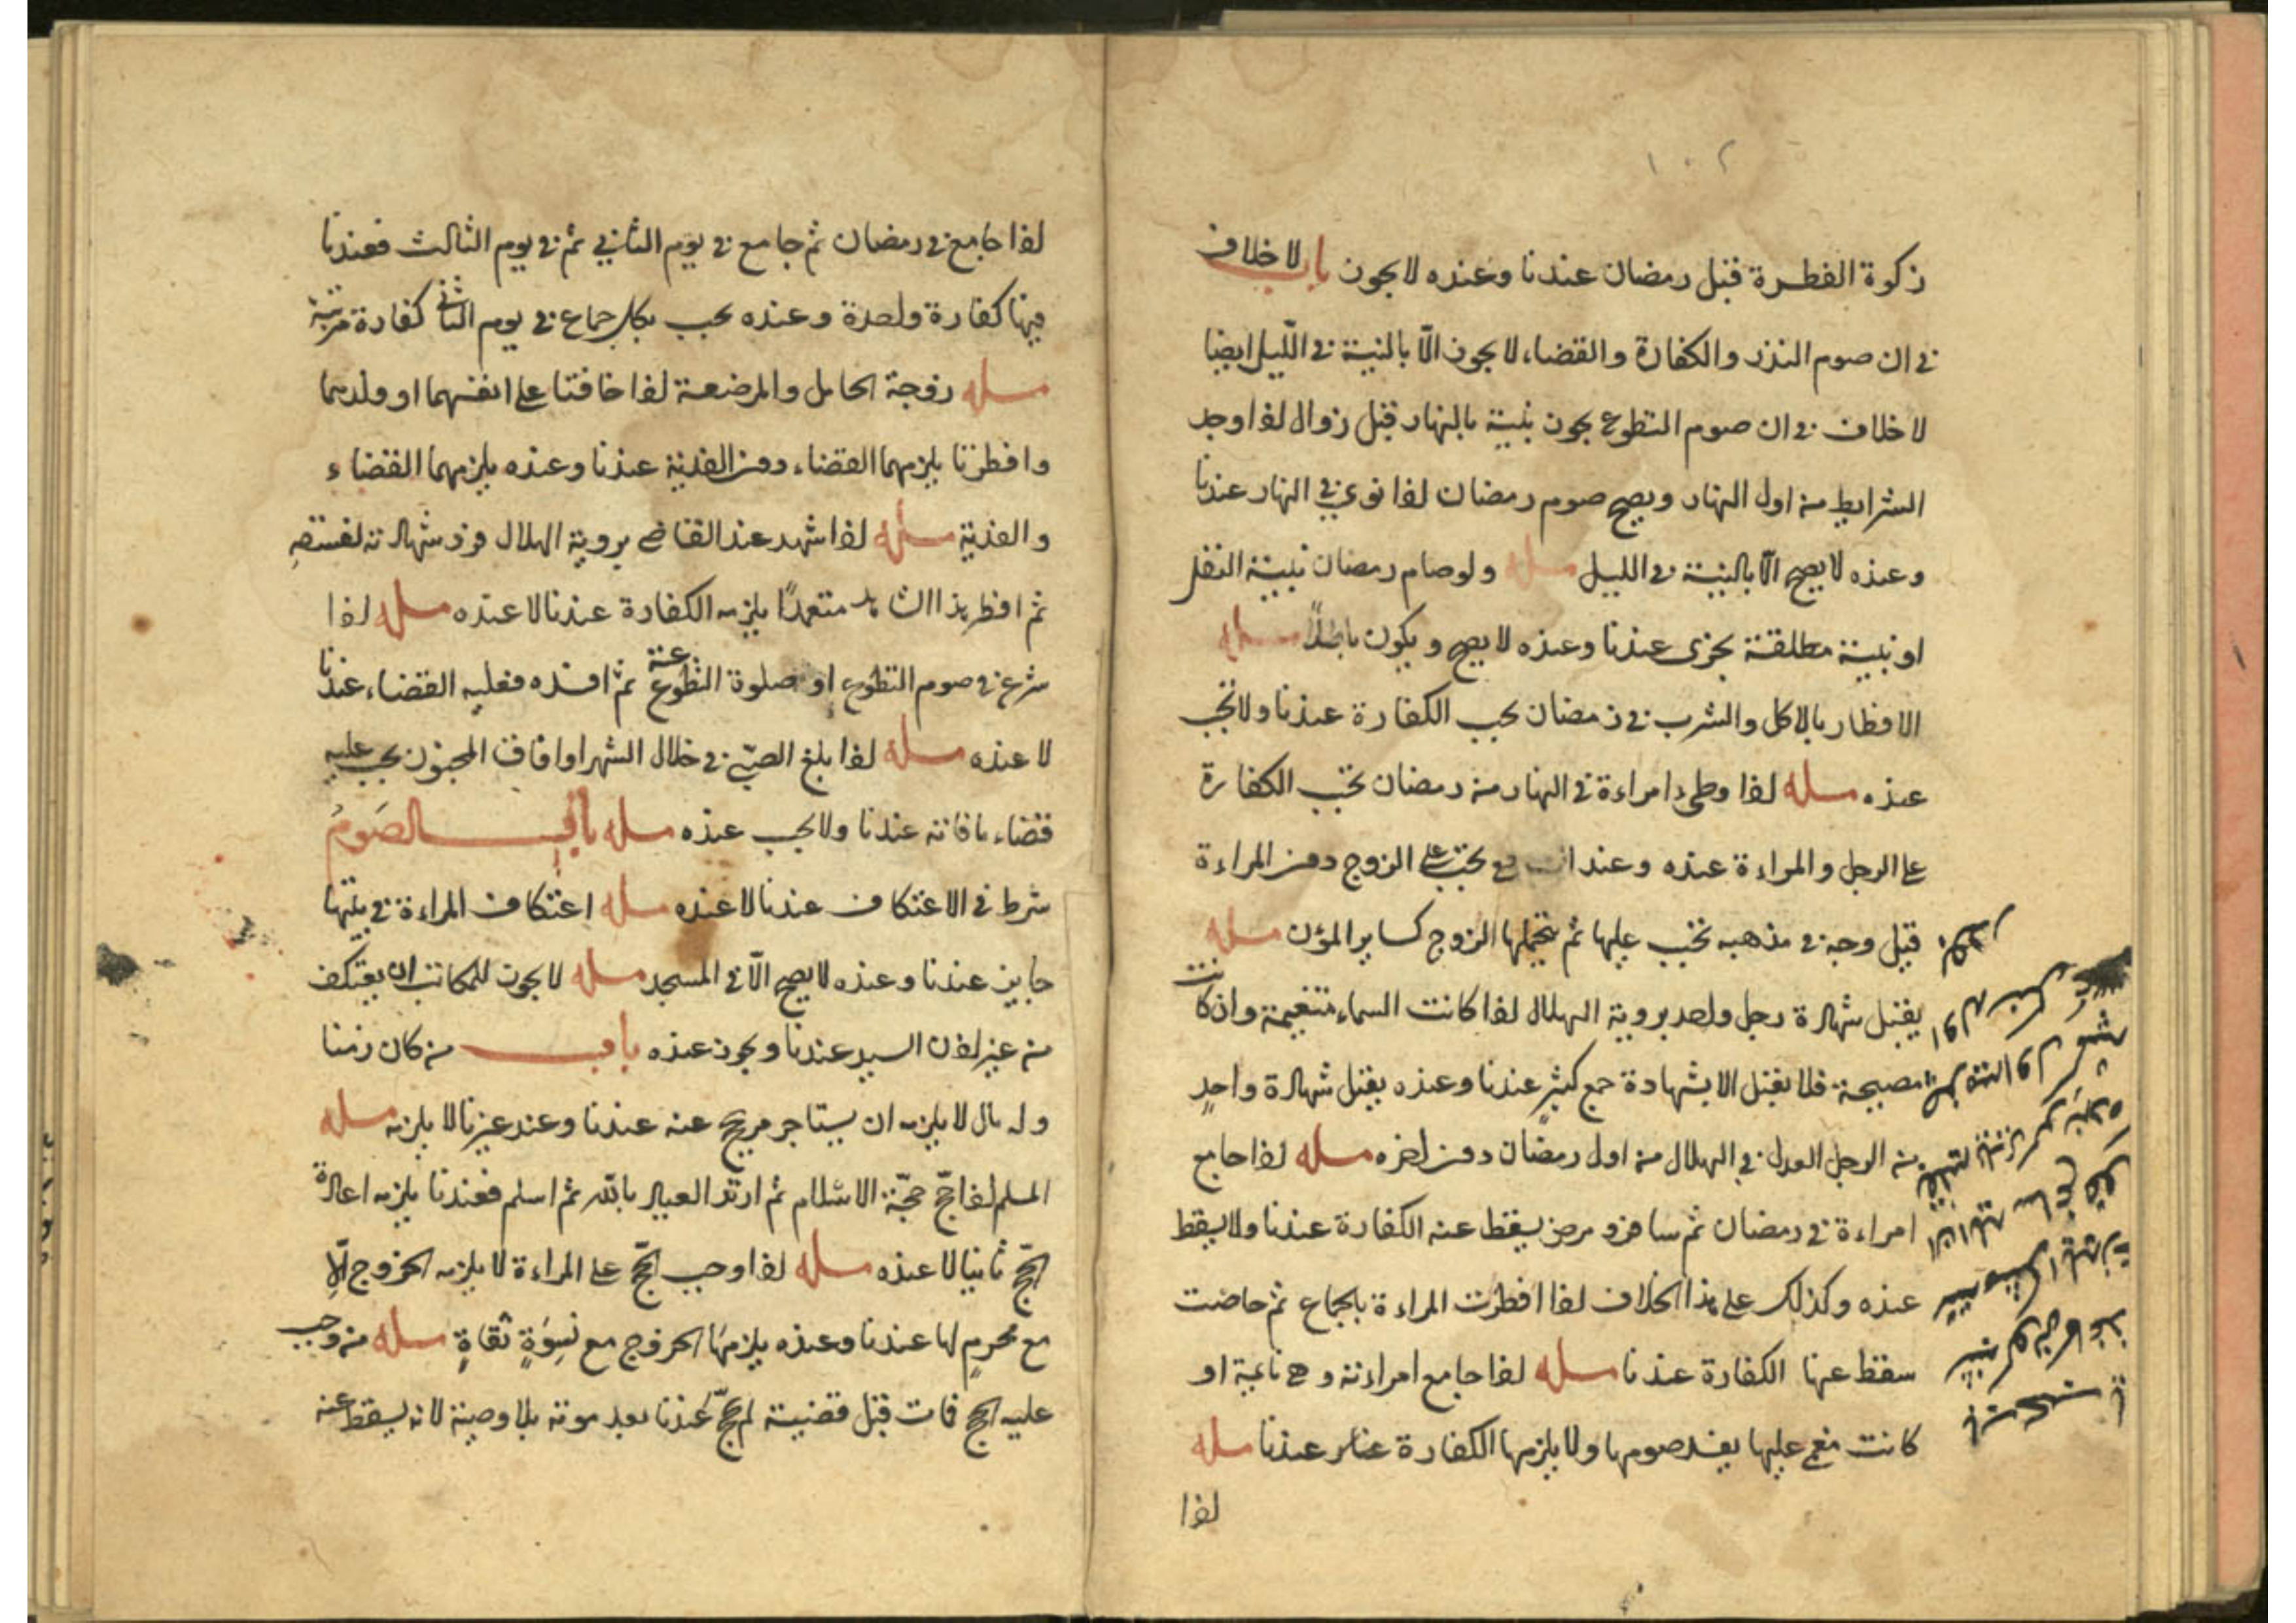 ١٠٢
زكوة الفطرة قبل رمضان عندنا وعنده لا يجوز باب لا خلاف
في ان صوم النذر والكفارة والقضاء لا يجوز الّا بالنية في اللّيل ايضا
لا خلاف في ان صوم التطوع يجوز بنية بالنهار قبل زوال اذا وجد
الشرايط من اول النهار ويصح صوم رمضان اذا نوى في النهار عندنا
وعنده لا يصح الّا بالنية في الليل مسله ولو صام رمضان بنية النفل
او بنية مطلقة يجزى عندنا وعنده لا يصح ويكون باطلاً مسله
الافطار بالاكل والشرب في رمضان يجب الكفارة عندنا ولا تجب
عنده مسله اذا وطىء امراءة في النهار من رمضان تجب الكفارة
على الرجل والمراءة عنده وعند تجب على الزوج دون المراءة
قيل وجه في مذهبه تجب عليها ثم يتحملها الزوج كساير المؤن مسله
يقبل شهادة رجل واحد بروية الهلال اذا كانت السماء متغيمة وان كانت
مصبحة فلا يقبل الا بشهادة جمع كثير عندنا وعنده يقبل شهادة واحدٍ
من الرجل العدل في الهلال من اول رمضان دون اخره مسله اذا جامع
امراءة في رمضان ثم سافر و مرض يسقط عنه الكفارة عندنا ولا يسقط
عنده وكذلك على هذا الخلاف اذا افطرت المراءة بالجماع ثم حاضت
سقط عنها الكفارة عندنا مسله اذا جامع امراءته وهي نايمة او
كانت مغمى عليها يفسد صومها ولا يلزمها الكفارة عندنا مسله
اذا
اذا جامع في رمضان ثم جامع في يوم الثاني ثم في يوم الثالث فعندنا
فيها كفارة واحدة وعنده يجب بكل جماع في يوم الثانى كفارة مرتبة
مسله زوجة الحامل والمرضعة اذا خافتا على انفسهما او ولدهما
وافطرتا يلزمهما القضاء دون الفدية عندنا وعنده يلزمهما القضاء
والفدية مسله اذا شهد عند القاضى بروية الهلال فرد شهادته لفسقهِ
ثم افطر هذا الشاهد متعمدًا يلزمه الكفارة عندنا لا عنده مسله اذا
شرع في صوم التطوع او صلوة التطوع ثم افسده فعليه القضاء عندنا
لا عنده مسله اذا بلغ الصبّي في خلال الشهر او افاق المجنون يجب عليه
قضاء ما فاته عندنا ولا يجب عنده مسله باب الصَومُ
شرط في الاعتكاف عندنا لا عنده مسله اعتكاف المراءة في بيتها
جايز عندنا وعنده لا يصح الّا في المسجد مسله لا يجوز للمكاتب ان يعتكف
من غير اذن السيد عندنا ويجوز عنده باب من كان زمنا
وله مال لا يلزمه ان يستاجر من يحج عنه عندنا وعند غيرنا لا يلزمه مسله
المسلم اذا حجّ حجّة الاسلام ثم ارتد العياذ بالله ثم اسلم فعندنا يلزمه اعادة
الحجّ ثانيا لا عنده مسله اذا وجب الحجّ على المراءة لا يلزمه الخروج الّا
مع محرمٍ لها عندنا وعنده يلزمها الخروج مع نسوةٍ ثقاةٍ مسله من وجب
عليه الحج فات قبل قضيته لم يحجّ عندنا بعد موته بلا وصية لانه يسقط عنه